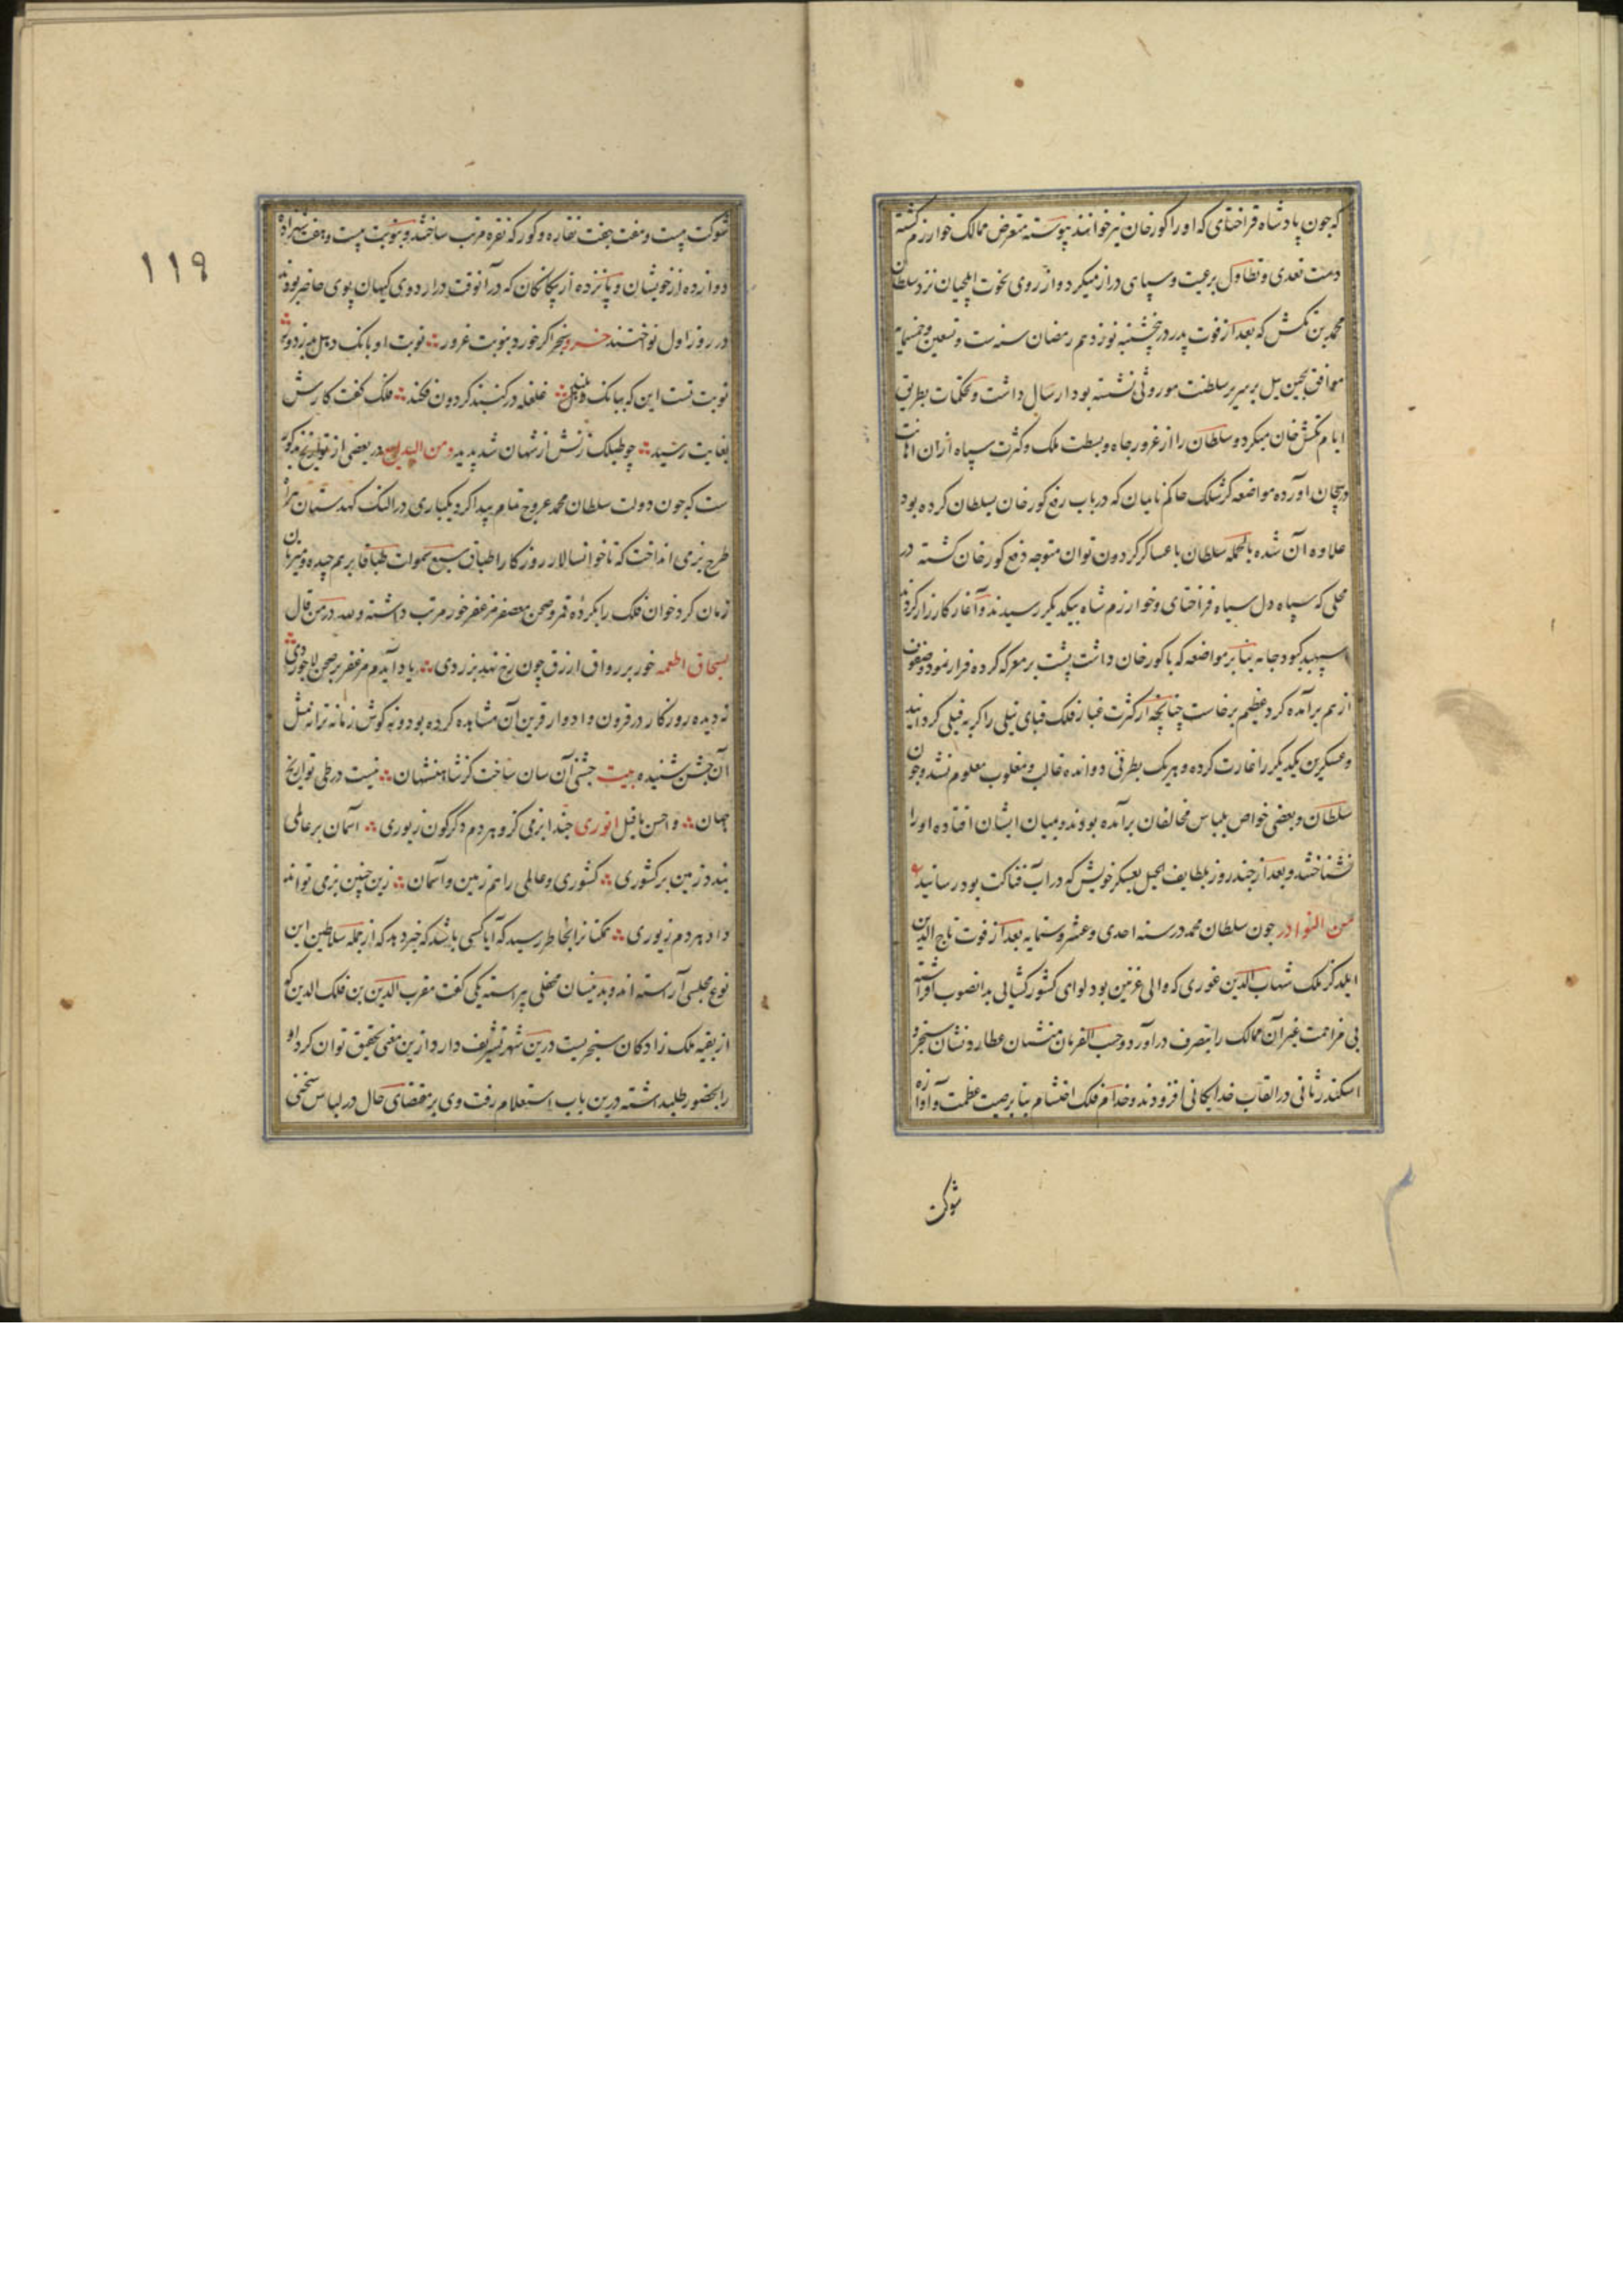 که چون پادشاه قراختای که او را کورخان نیز خوانند پیوسته متعرض ممالک خوارزم کشته
دست تعدی و تطاول برعیت و سپاهی دراز میکرد و از روی نخوت ایلچیان نزد سلطان
محمد بن تکش که بعد از فوت پدر در پنجشنبه نوزدهم رمضان سنه ست و تسعین و خمسمایه
موافق پیچین ییل بر سریر سلطنت موروثی نشسته بود ارسال داشت و تحکمات بطریق
ایام تکش خان میکرد و سلطان را از غرور جاه و بسطت ملک و کثرت سپاه ازان اهانت
در هیجان آورده مواضعه که حاکم که در باب رفع کورخان بسلطان کرده بود
علاوه آن شده بالجمله سلطان با عساکر کردون توان متوجه دفع کورخان کشته در
محلی که سپاه دل سیاه قراختای و خوارزم شاه بیکدیکر رسیدند و آغاز کارزار کردند
اسپهبد کبود جامه بنا بر مواضعه که با کورخان داشت پشت بر معرکه کرده فرار نمود و صفوف
از هم برآمده کرد عظیم برخاست چنانچه از کثرت غبار فلک قبای نیلی را کربه فیلی کردانید
و عسکرین یکدیکر را غارت کرده و هر یک بطرفی دوانده غالب و مغلوب معلوم نشد و چون
سلطان و بعضی خواص بلباس مخالفان برآمده بودند و میان ایشان افتاده او را
نشناختند و بعد از چند روز بلطایف الحیل بعسکر خویش که در آب فناکت بود رسانید
من النوادر چون سلطان محمد در سنه احدی و عشر و ستمایه بعد از فوت تاج الدین
ایلدکز ملک شهاب الدین غوری که والی غزنین بود لوای کشورکشایی بدانصوب افراشته
بی مزاحمت غیر آن ممالک را بتصرف درآورد و حسب الفرمان منشیان عطارد نشان سنجر و
اسکندر ثانی در القاب خدایکانی افزودند و خدام فلک احتشام بنا بر صیت عظمت و آوازه
شوکت
شوکت بیست و هفت جفت نقاره و کورکه نقره مرتب ساختند و نوبت بیست و هفت
دوازده از خویشان و پانزده از بیکانکان که در آنوقت در اردوی کیهان پوی حاضر بودند
در روز اول نواختند خسرو سنجر اکر خورد بنوبت غرور نوبت او بانک دهل میزد دور
نوبت تست این که ببانک دهل غلغله در کنبد کردون فکند فلک کفت کارش
بغایت رسید چو طبلک زنش از شهان شد پدید و من البدایع در بعضی از تواریخ مذکور
ست که چون دولت سلطان محمد عروج تمام پیدا کرد یکباری در النک کهدستان هراة
طرح بزمی انداخت که تا خوانسالار روزکار اطباق سبع سموات طباقا بر هم چیده و میزبان
زمان کرد خوان فلک را بکرده قمر و صحن معصفر مزعفر خور مرتب داشته و لله در من قال
بسحاق اطعمه خور بر رواق ازرق چون رخ نهد بزردی یاد آیدم مزعفر بر صحن لاجوردی
نه دیده روزکار در قرون و ادوار قرین آن مشاهده کرده بود و نه کوش زمانه ترانه مثل
آن جشن شنیده بیت جشنی آن سان ساخت کز شاهنشهان نیست در طی تواریخ
جهان و احسن ما قیل انوری حبذا بزمی کزو هر دم دکرکون زیوری آسمان بر عالمی
بندد زمین بر کشوری کشوری و عالمی را هم زمین و آسمان زین چنین بزمی تواند
داد هر دم زیوری همکنانرا بخاطر رسید که آیا کسی باشد که خبر دهد که از جمله سلاطین این
نوع مجلسی آراسته اند و بدینسان محفلی پیراسته یکی کفت مقرب الدین بن فلک الدین که
از بقیه ملک زادکان سنجریست درین شهر تشریف دارد ازین معنی تحقیق توان کرد او
را بحضور طلبداشته درین باب استعلام رفت وی بر مقتضای حال در لباس سخنی
۱۱۹